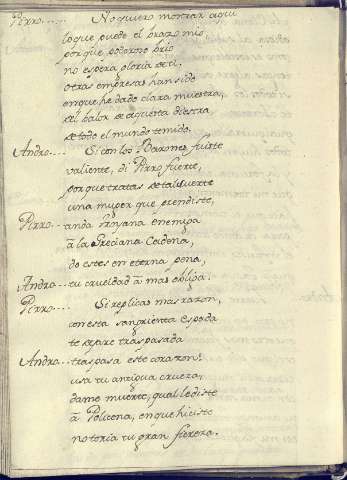 Pirro.... No quiero mostrar aqui
lo que puede el brazo mio
porque poderoso brio
no espera gloria de ti.
otras empresas han sido
en que he dado clara muestra,
del balor de aquesta diestra,
de todo el mundo temido.
Andro.... Si con los Barones fuiste
valiente, di Pirro fuerte,
porque tratas de tal suerte
una muger que prendiste,
Pirro.. anda Troyana enemiga
à la Greciana Cadena,
do estes en eterna pena,
Andro.. tu crueldad à mas obliga.
Pirro.... Si replicas mas razon,
con esta sangrienta espada
te dexare traspasada
Andro... traspasa este corazon!
usa tu antigua crueza,
dame muerte, qual le diste
à Policena, en que hiciste
notoria tu gran fiereza.